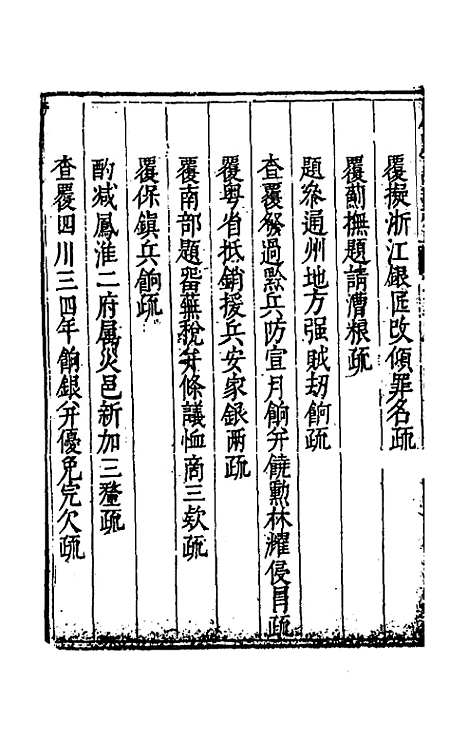 覆擬浙江銀匠改傾罪名疏
覆薊撫題請漕粮疏
題叅通州地方强賊刼餉疏
查覆發過黔兵防宜月餉并饒勲林耀侵冐疏
覆粤省抵銷援兵安家銀两疏
覆南部題畱蕪稅并條議恤商三欵疏
覆保鎮兵餉疏
酌减鳳淮二府属災邑新加三釐疏
查覆四川三四年餉銀并優免完欠疏